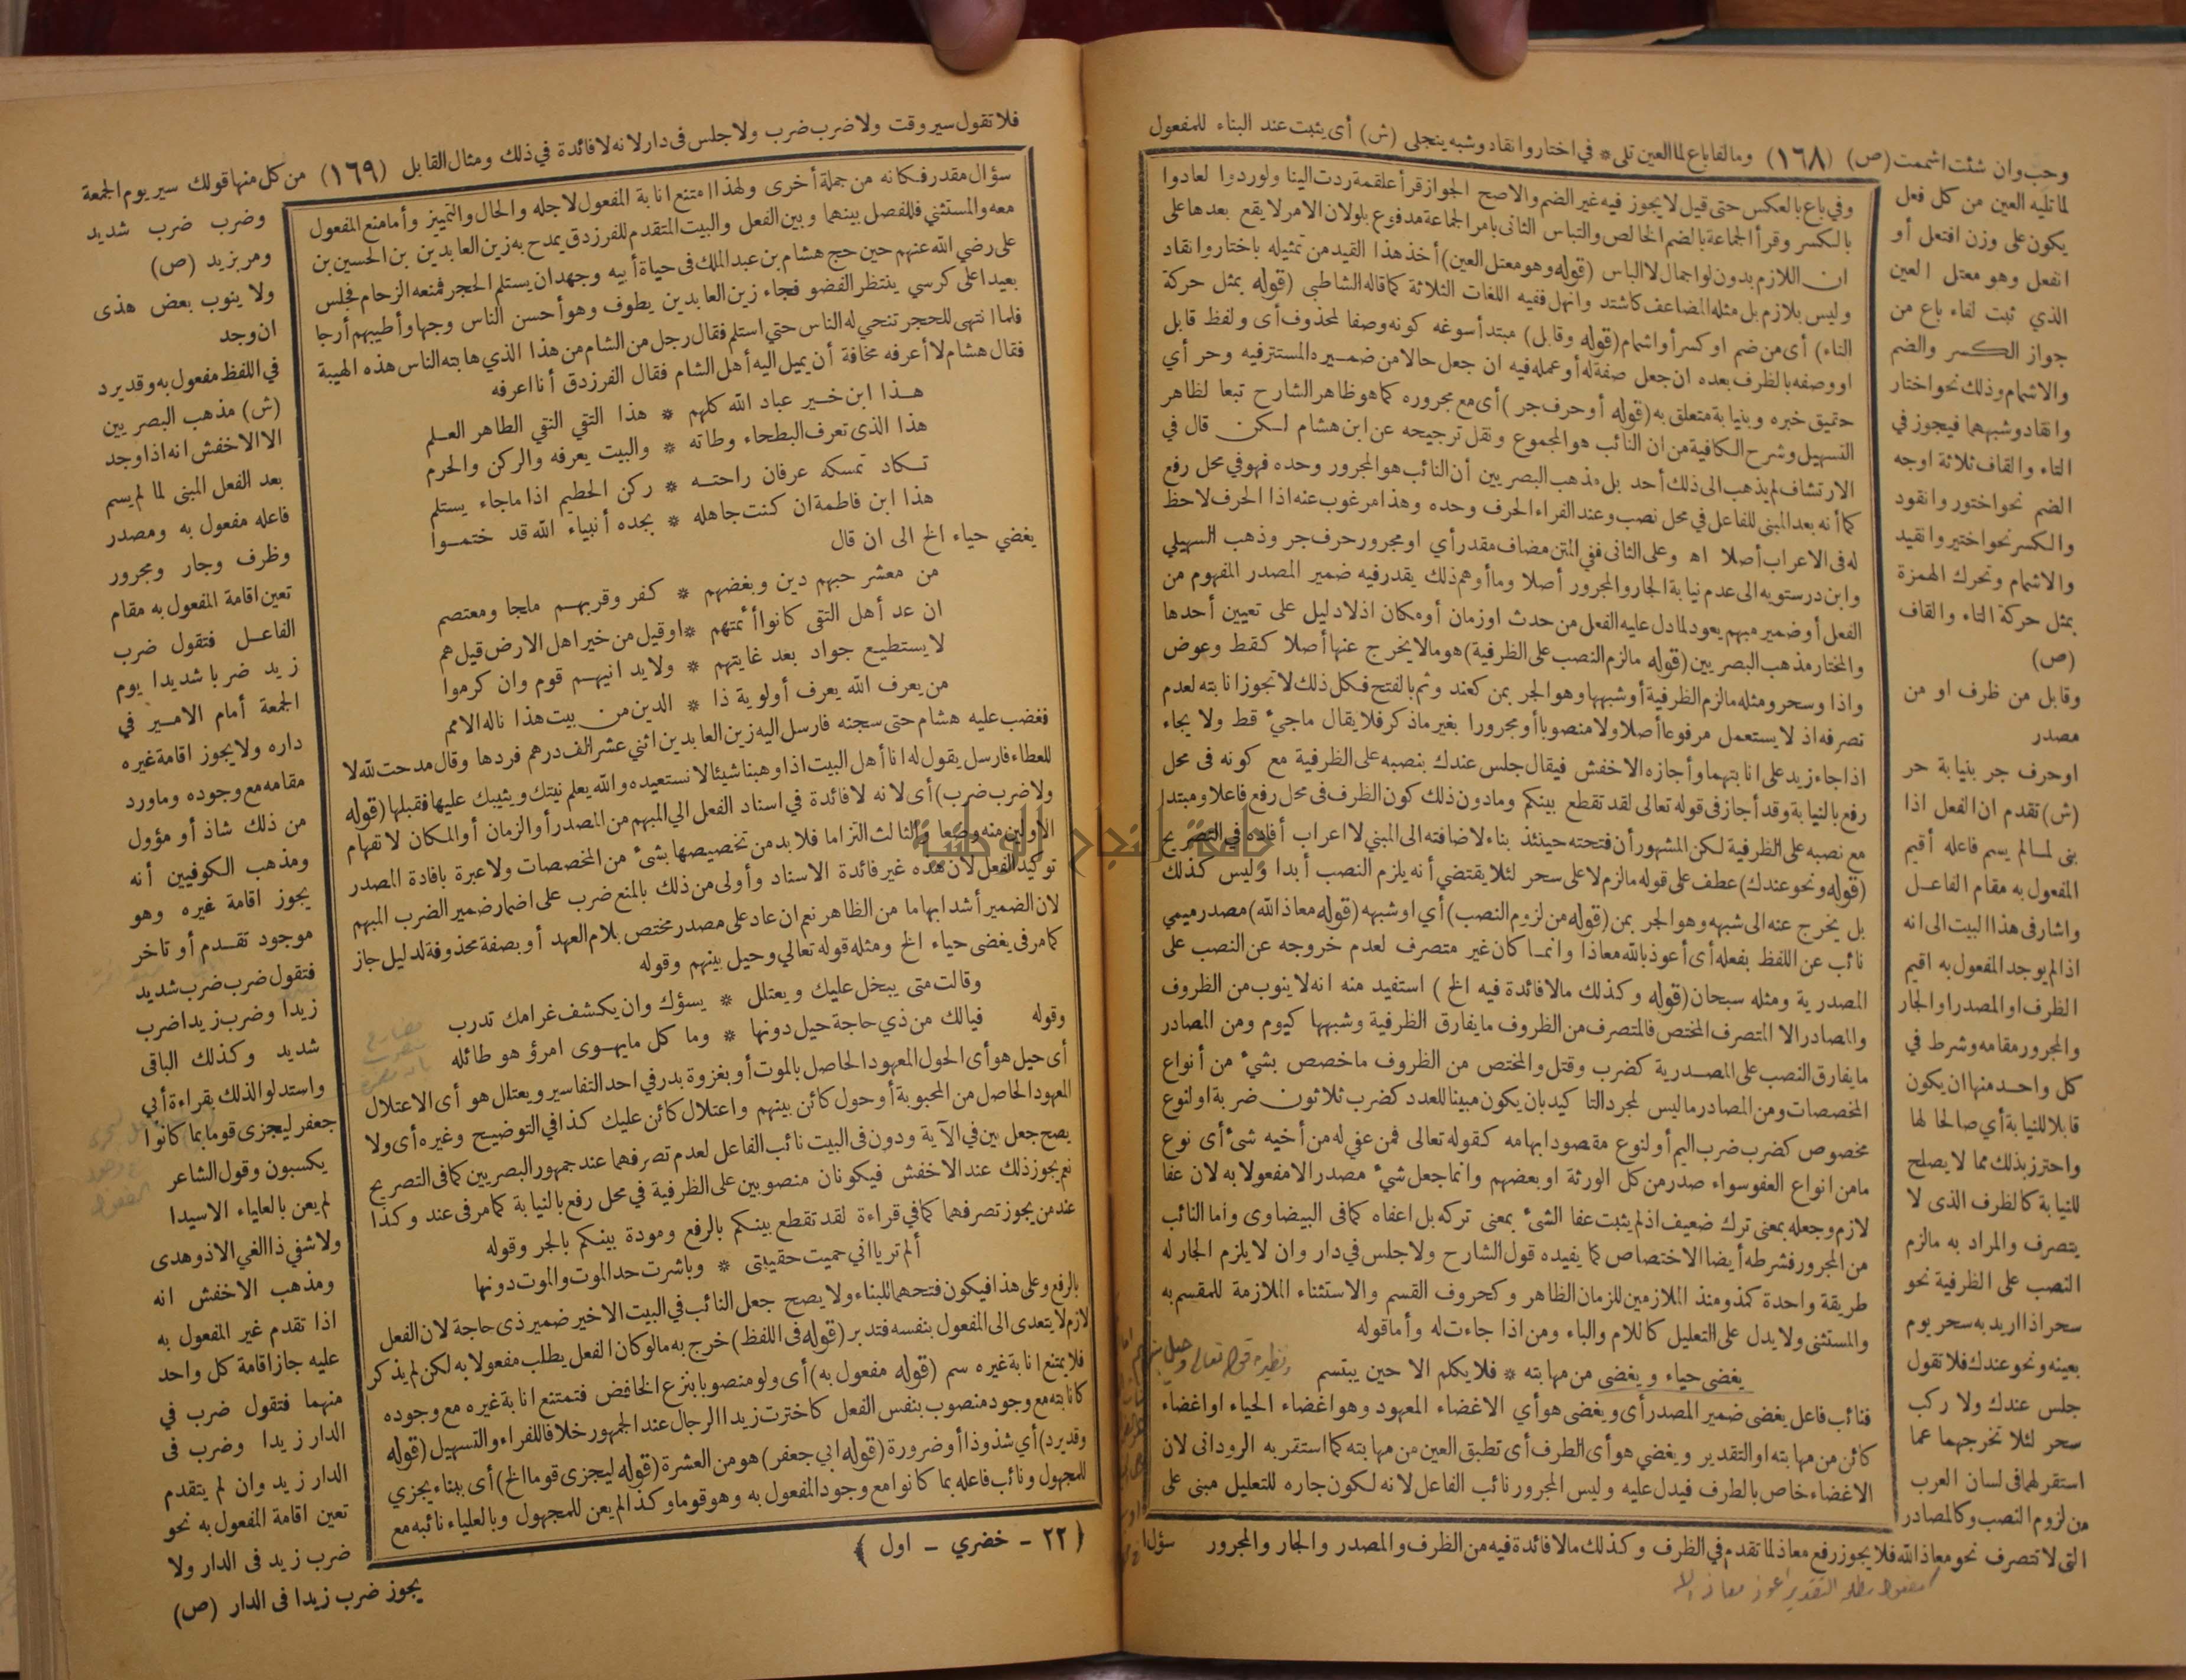 وحب وان شئت اشممت (ص) (١٦٨) وما لفا باع لما العين تلى * في اختار وانقاد وشبه ينجلي (ش) أى يثبت عند البناء للمفعول
لما تليه العين من كل فعل
يكون على وزن افتعل أو
انفعل وهو معتل العين
الذي ثبت لفاء باع من
جواز الكسر والضم
والاشمام وذلك نحو اختار
وانقاد وشبههما فيجوز في
التاء والقاف ثلاثة اوجه
الضم نحو اختور وانقود
والكسر نحو اختير وانقيد
والاشمام وتحرك الهمزة
بمثل حركة التاء والقاف
(ص)
وقابل من ظرف او من
مصدر
اوحرف جر بنيابة حر
(ش) تقدم ان الفعل اذا
بنى لما لم يسم فاعله أقيم
المفعول به مقام الفاعل
واشار فى هذا البيت الى انه
اذا لم يوجد المفعول به اقيم
الظرف او المصدر او الجار
والمجرور مقامه وشرط في
كل واحد منها ان يكون
قابلا للنيابة أي صالحا لها
واحترز بذلك مما لا يصلح
للنيابة كالظرف الذى لا
يتصرف والمراد به مالزم
النصب على الظرفية نحو
سحر اذا اريد به سحر يوم
بعينه ونحو عندك فلا تقول
جلس عندك ولا ركب
سحر لئلا تخرجهما عما
استقر لهما فى لسان العرب
من لزوم النصب وكالمصادر
التى لا تتصرف نحو معاذ الله فلا يجوز رفع معاذ لما تقدم في الظرف وكذلك مالا فائدة فيه من الظرف والمصدر والجار والمجرور
وفي باع بالعكس حتى قيل لا يجوز فيه غير الضم والاصح الجواز قرأ علقمة ردت الينا ولو ردوا لعادوا
بالكسر وقرأ الجماعة بالضم الخالص والتباس الثانى بامر الجماعة مدفوع بلولان الامر لا يقع بعدها على
ان اللازم بدون لو اجمال لا الباس (قوله وهو معتل العين) أخذ هذا القيد من تمثيله باختار وانقاد
وليس بلازم بل مثله المضاعف كاشتد وانهل ففيه اللغات الثلاثة كما قاله الشاطبي (قوله بمثل حركة
التاء) أى من ضم او كسر أو اشمام (قوله وقابل) مبتدأ سوغه كونه وصفا لمحذوف أى ولفظ قابل
او وصفه بالظرف بعده ان جعل صفة له أو عمله فيه ان جعل حالا من ضميره المستتر فيه وحر أي
حقيق خبره وبنيابة متعلق به (قوله أو حرف جر) أى مع مجروره كما هو ظاهر الشارح تبعا لظاهر
التسهيل وشرح الكافية من ان النائب هو المجموع ونقل ترجيحه عن ابن هشام لكن قال في
الارتشاف لم يذهب الى ذلك أحد بل مذهب البصريين أن النائب هو المجرور وحده فهو في محل رفع
كما أنه بعد المبنى للفاعل في محل نصب وعند الفراء الحرف وحده وهذا مرغوب عنه اذ الحرف لا حظ
له فى الاعراب أصلا اه وعلى الثانى ففي المتن مضاف مقدر أي او مجرور حرف جر وذهب السهيلي
وابن درستويه الى عدم نيابة الجار والمجرور أصلا وما أوهم ذلك يقدر فيه ضمير المصدر المفهوم من
الفعل أو ضمير مبهم يعود لما دل عليه الفعل من حدث او زمان أو مكان اذ لا دليل على تعيين أحدها
والمختار مذهب البصريين (قوله مالزم النصب على الظرفية) هو مالا يخرج عنها أصلا كقط وعوض
واذا وسحر ومثله مالزم الظرفية أو شبهها وهو الجر بمن كعند وثم بالفتح فكل ذلك لا تجوز انابته لعدم
تصرفه اذ لا يستعمل مرفوعا أصلا ولا منصوبا أو مجرورا بغير ما ذكر فلا يقال ماجيء قط ولا يجاء
اذا جاء زيد على انابتهما وأجازه الاخفش فيقال جلس عندك بنصبه على الظرفية مع كونه فى محل
رفع بالنيابة وقد أجاز فى قوله تعالى لقد تقطع بينكم ومادون ذلك كون الظرف فى محل رفع فاعلا ومبتدا
مع نصبه على الظرفية لكن المشهور أن فتحته حينئذ بناء لاضافته الى المبني لا اعراب أفاده في التصريح
(قوله ونحو عندك) عطف على قوله مالزم لا على سحر لئلا يقتضي أنه يلزم النصب أبدا وليس كذلك
بل يخرج عنه الى شبهه وهو الجر بمن (قوله من لزوم النصب) أي او شبهه (قوله معاذ الله) مصدر ميمي
نائب عن اللفظ بفعله أى أعوذ بالله معاذا وانما كان غير متصرف لعدم خروجه عن النصب على
المصدرية ومثله سبحان (قوله وكذلك مالا فائدة فيه الخ) استفيد منه انه لا ينوب من الظروف
والمصادر الا المتصرف المختص فالمتصرف من الظروف مايفارق الظرفية وشبهها كيوم ومن المصادر
مايفارق النصب على المصدرية كضرب وقتل والمختص من الظروف ماخصص بشيء من أنواع
المخصصات ومن المصادر ما ليس لمجرد التاكيد بان يكون مبينا للعدد كضرب ثلاثون ضربة او لنوع
مخصوص كضرب ضرب اليم أو لنوع مقصود ابهامه كقوله تعالى فمن عفى له من أخيه شئ أى نوع
مامن انواع العفو سواء صدر من كل الورثة او بعضهم وانما جعل شيء مصدرا لا مفعولا به لان عفا
لازم وجعله بمعنى ترك ضعيف اذ لم يثبت عفا الشئ بمعنى تركه بل اعفاه كما فى البيضاوى واما النائب
من المجرور فشرطه أيضا الاختصاص كما يفيده قول الشارح ولا جلس في دار وان لا يلزم الجار له
طريقة واحدة كمذ ومنذ الملازمين للزمان الظاهر وكحروف القسم والاستثناء الملازمة للمقسم به
والمستثنى ولا يدل على التعليل كاللام والباء ومن اذا جاءت له وأما قوله
يغضى حياء ويغضى من مهابته * فلا يكلم الا حين يبتسم
فنائب فاعل يغضى ضمير المصدر أى ويغضى هو أي الاغضاء المعهود وهو اغضاء الحياء او اغضاء
كائن من مهابته او التقدير ويغضي هو أى الطرف أى تطبق العين من مهابته كما استقر به الروداني لان
الاغضاء خاص بالطرف فيدل عليه وليس المجرور نائب الفاعل لانه لكون جاره للتعليل مبنى على
سؤال
ونظيره قوله تعالى وحيل بين
مفعول مطلق التقدير اعوذ معاذ الله
فلا تقول سير وقت ولا ضرب ضرب ولا جلس فى دار لانه لا فائدة في ذلك ومثال القابل (١٦٩) من كل منها قولك سير يوم الجمعة
وضرب ضرب شديد
ومر بزيد (ص)
ولا ينوب بعض هذى
ان وجد
في اللفظ مفعول به وقد يرد
(ش) مذهب البصريين
الا الاخفش انه اذا وجد
بعد الفعل المبنى لما لم يسم
فاعله مفعول به ومصدر
وظرف وجار ومجرور
تعين اقامة المفعول به مقام
الفاعل فتقول ضرب
زيد ضربا شديدا يوم
الجمعة أمام الامير في
داره ولا يجوز اقامة غيره
مقامه مع وجوده وماورد
من ذلك شاذ أو مؤول
ومذهب الكوفيين أنه
يجوز اقامة غيره وهو
موجود تقدم أو تاخر
فتقول ضرب ضرب شديد
زيدا وضرب زيدا ضرب
شديد وكذلك الباقى
واستدلوا لذلك بقراءة أبي
جعفر ليجزى قوما بما كانوا
يكسبون وقول الشاعر
لم يعن بالعلياء الا سيدا
ولا شفي ذا الغي الا ذو هدى
ومذهب الاخفش انه
اذا تقدم غير المفعول به
عليه جاز اقامة كل واحد
منهما فتقول ضرب في
الدار زيدا وضرب فى
الدار زيد وان لم يتقدم
تعين اقامة المفعول به نحو
ضرب زيد فى الدار ولا
يجوز ضرب زيدا فى الدار (ص)
سؤال مقدر فكانه من جملة أخرى ولهذا امتنع انابة المفعول لاجله والحال والتمييز وأما منع المفعول
معه والمستثني فللفصل بينهما وبين الفعل والبيت المتقدم للفرزدق يمدح به زين العابدين بن الحسين بن
على رضي الله عنهم حين حج هشام بن عبد الملك فى حياة أبيه وجهد ان يستلم الحجر فمنعه الزحام فجلس
بعيدا على كرسي ينتظر الفضو فجاء زين العابدين يطوف وهو أحسن الناس وجها وأطيبهم أرجا
فلما انتهى للحجر تنحي له الناس حتي استلم فقال رجل من الشام من هذا الذي هابته الناس هذه الهيبة
فقال هشام لا أعرفه مخافة أن يميل اليه أهل الشام فقال الفرزدق أنا اعرفه
هذا ابن خير عباد الله كلهم * هذا التقي النقي الطاهر العلم
هذا الذى تعرف البطحاء وطاته * والبيت يعرفه والركن والحرم
تكاد تمسكه عرفان راحته * ركن الحطيم اذا ماجاء يستلم
هذا ابن فاطمة ان كنت جاهله * بجده أنبياء الله قد ختموا
يغضي حياء الخ الى ان قال
من معشر حبهم دين وبغضهم * كفر وقربهم ملجا ومعتصم
ان عد أهل التقى كانوا أئمتهم * اوقيل من خير اهل الارض قيل هم
لا يستطيع جواد بعد غايتهم * ولا يدانيهم قوم وان كرموا
من يعرف الله يعرف أولوية ذا * الدين من بيت هذا ناله الامم
فغضب عليه هشام حتى سجنه فارسل اليه زين العابدين اثني عشر الف درهم فردها وقال مدحت لله لا
للعطاء فارسل يقول له انا أهل البيت اذا وهبنا شيئا لا نستعيده والله يعلم نيتك ويثيبك عليها فقبلها (قوله
ولا ضرب ضرب) أى لانه لا فائدة في اسناد الفعل الي المبهم من المصدر أو الزمان أو المكان لا تفهام
الاولين منه وضعا والثالث التزاما فلا بد من تخصيصها بشئ من المخصصات ولا عبرة بافادة المصدر
توكيد الفعل لان هذه غير فائدة الاسناد وأولى من ذلك بالمنع ضرب على اضمار ضمير الضرب المبهم
لان الضمير أشد ابهاما من الظاهر نعم ان عاد على مصدر مختص بلام العهد أو بصفة محذوفة لدليل جاز
كما مر فى يغضى حياء الخ ومثله قوله تعالي وحيل بينهم وقوله
وقالت متى يبخل عليك ويعتلل * يسؤك وان يكشف غرامك تدرب
وقوله فيالك من ذي حاجة حيل دونها * وما كل مايهوى امرؤ هو طائله
أى حيل هو أى الحول المعهود الحاصل بالموت أو بغزوة بدر في احد التفاسير ويعتلل هو أى الاعتلال
المعهود الحاصل من المحبوبة أو حول كائن بينهم واعتلال كائن عليك كذا في التوضيح وغيره أى ولا
يصح جعل بين في الآية ودون فى البيت نائب الفاعل لعدم تصرفهما عند جمهور البصريين كما فى التصريح
نعم يجوز ذلك عند الاخفش فيكونان منصوبين على الظرفية في محل رفع بالنيابة كما مر فى عند وكذا
عند من يجوز تصرفهما كما في قراءة لقد تقطع بينكم بالرفع ومودة بينكم بالجر وقوله
ألم تريا اني حميت حقيبتى * وباشرت حد الموت والموت دونها
بالرفع وعلى هذا فيكون فتحهما للبناء ولا يصح جعل النائب في البيت الاخير ضمير ذى حاجة لان الفعل
لازم لا يتعدى الى المفعول بنفسه فتدبر (قوله فى اللفظ) خرج به مالو كان الفعل يطلب مفعولا به لكن لم يذكر
فلا يمتنع انابة غيره سم (قوله مفعول به) أى ولو منصوبا بنزع الخافض فتمتنع انابة غيره مع وجوده
كانابته مع وجود منصوب بنفس الفعل كاخترت زيدا الرجال عند الجمهور خلافا للفراء والتسهيل (قوله
وقد يرد) أي شذوذا أو ضرورة (قوله ابي جعفر) هو من العشرة (قوله ليجزى قوما الخ) أى ببناء يجزي
للمجهول ونائب فاعله بما كانوا مع وجود المفعول به وهو قوما وكذا لم يعن للمجهول وبالعلياء نائبه مع
(٢٢ - خضري - اول)
جامعة النجاح الوطنية